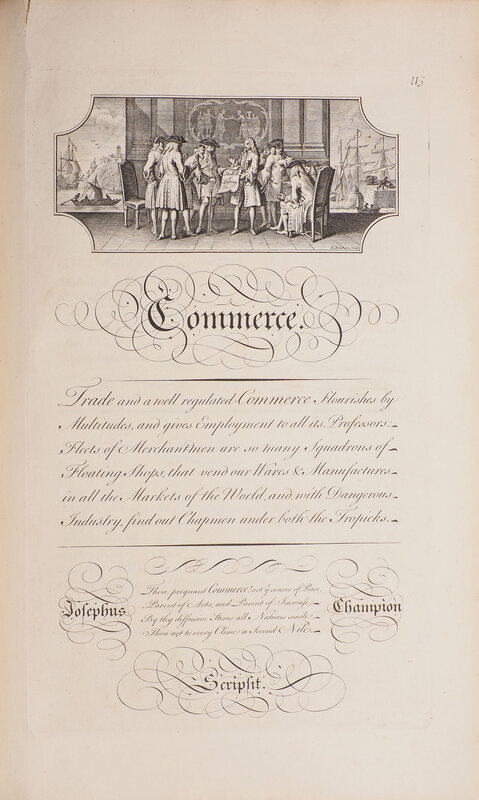 115
Commerce.
Trade and a well regulated Commerce flourishes by
Multitudes, and gives Employment to all its Professors.
Fleets of Merchantmen are so many Squadrons of
Floating Shops, that vend our Wares & Manufactures
in all the Markets of the World, and with Dangerous
Industry, find out Chapmen under both the Tropicks.
Thou, pregnant Commerce! art ye source of Peace,
Parent of Arts, and Parent of Increase,
By thy diffusive Stores all Nations smile,
Thou art to every Clime a Second Nile.
Josephus Champion
Scripsit.